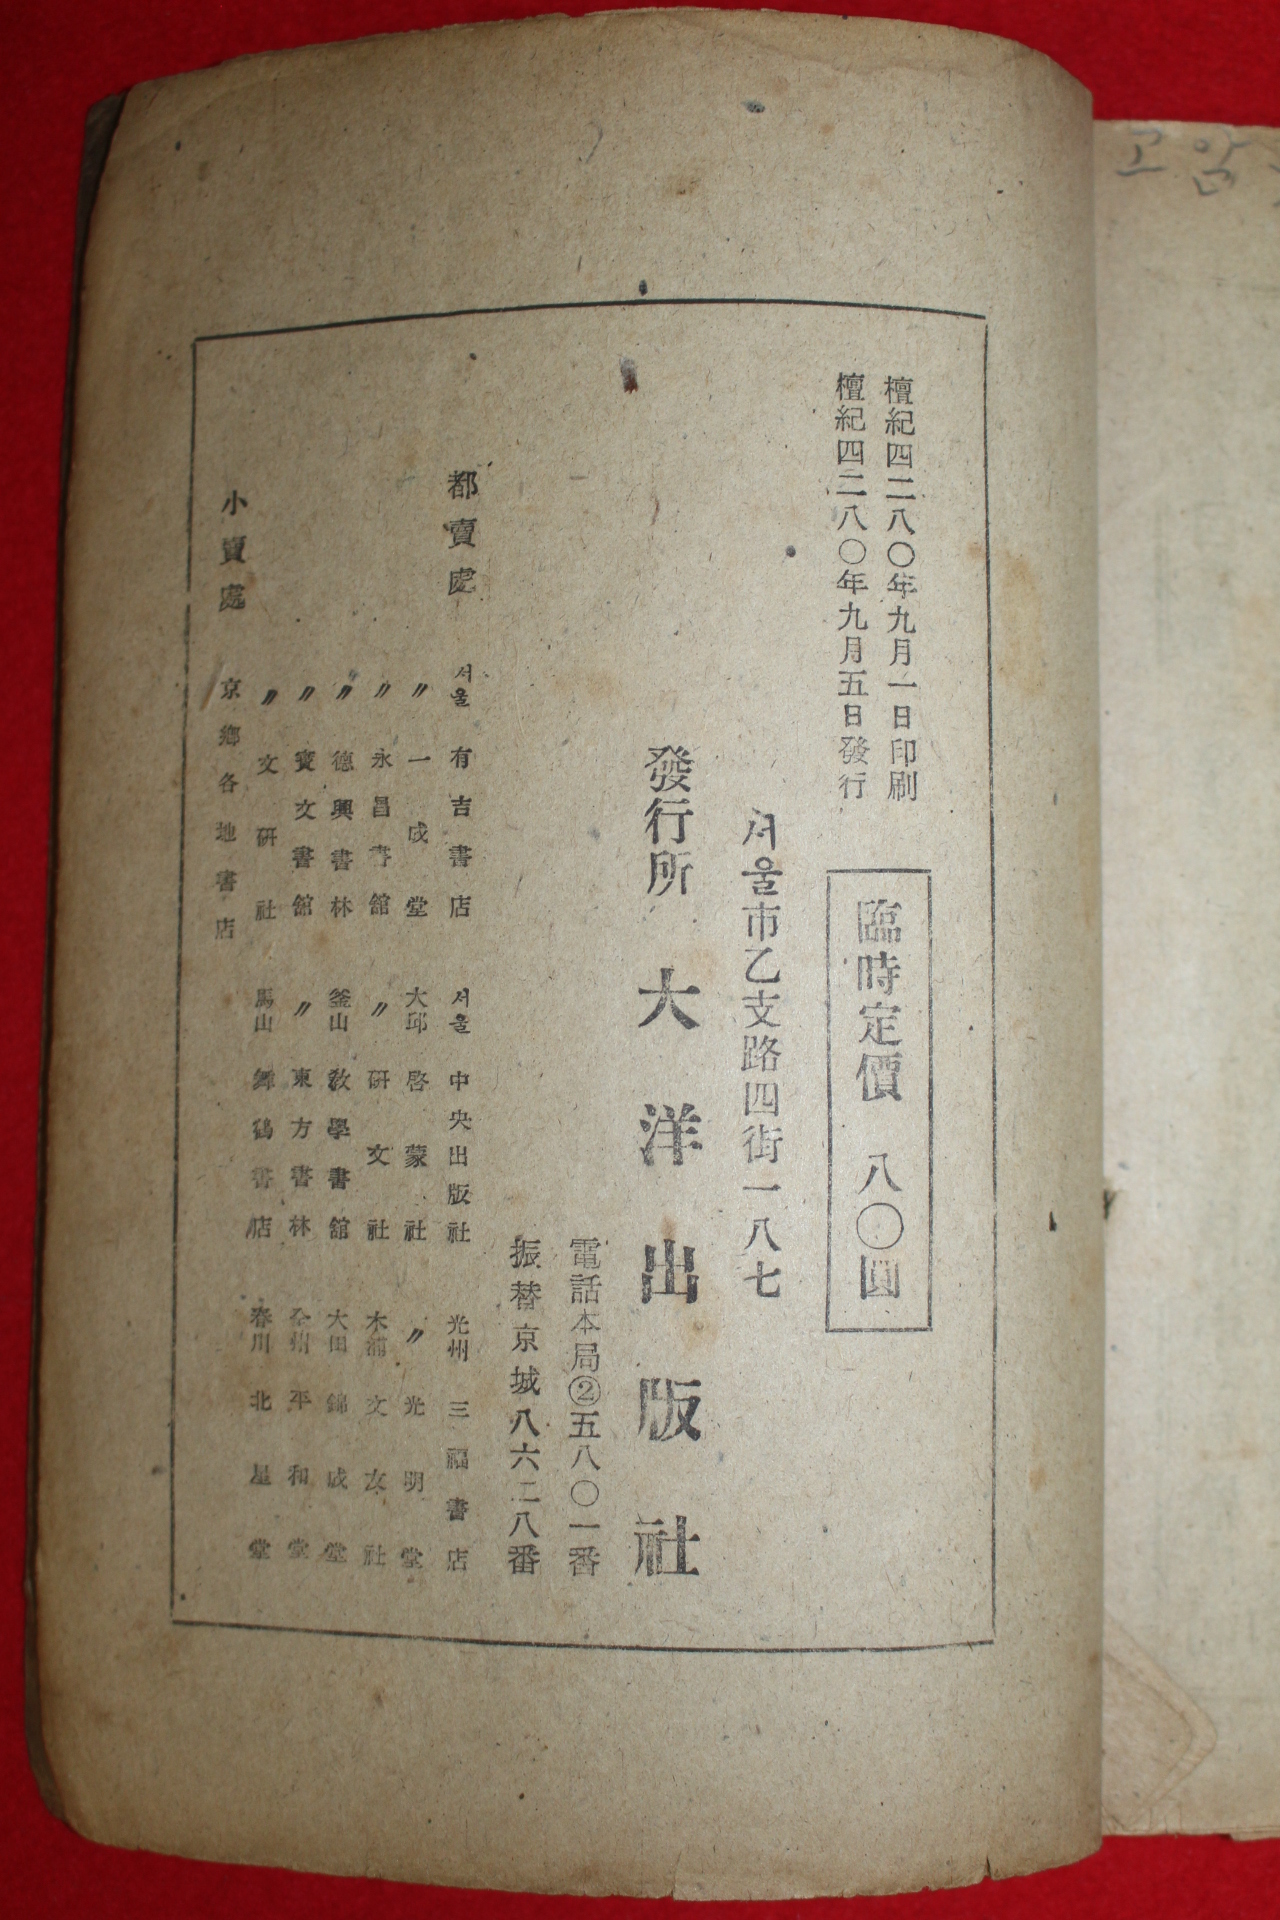 檀紀四二八〇年九月一日印刷
檀紀四二八〇年九月五日發行
臨時定價 八〇圓
서울市乙支路四街一八七
發行所 大洋出版社
電話本局②五八〇一番
振替京城八六二八番
都賣處 서울 有吉書店 서울 中央出版社 光州 三福書店
〃 一成堂 大邱 啓蒙社 〃 光明堂
〃 永昌書館 〃 硏文社 木浦 文友社
〃 德興書林 釜山 敎學書館 大田 錦成堂
〃 寶文書館 〃 東方書林 全州 平和堂
〃 文硏社 馬山 舞鶴書店 春川 北星堂
小賣處 京鄉各地書店
고암